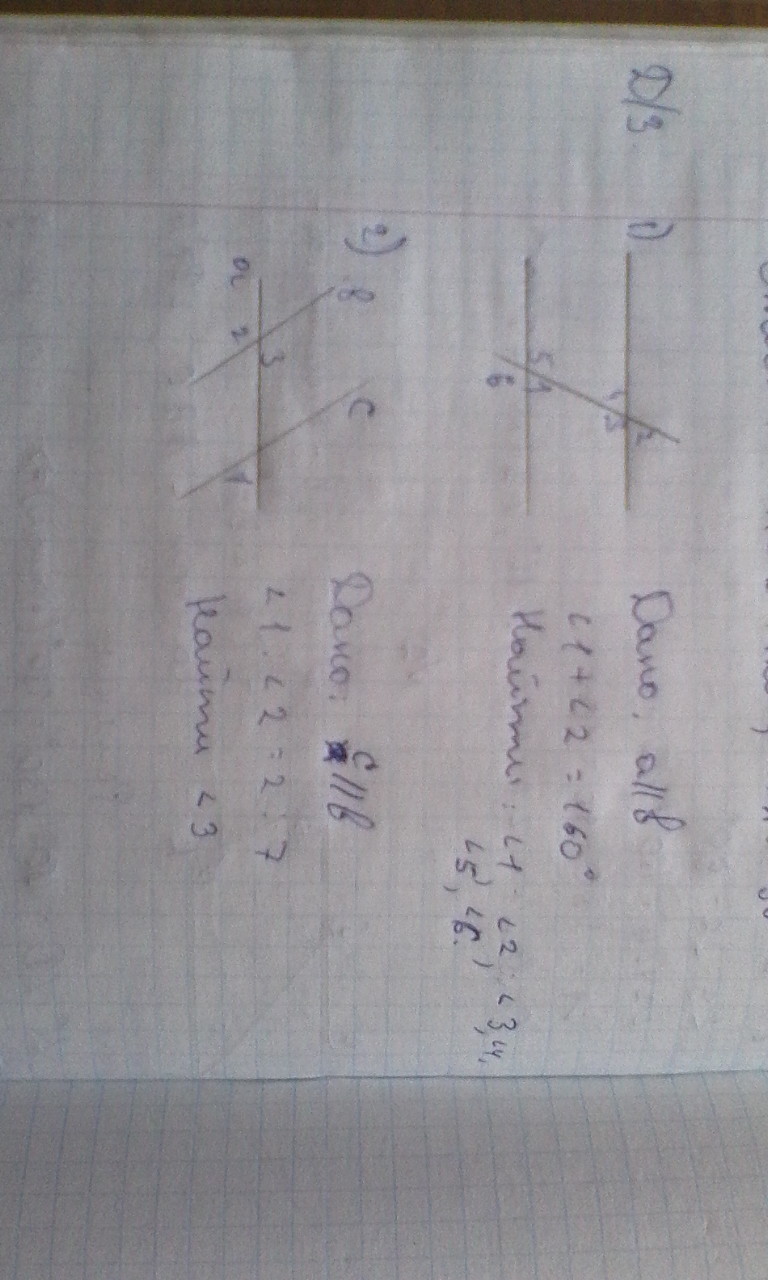 Д/З
1)
2
4 3
5 1
6
Дано: a||в
∠1+∠2=160°
Найти: ∠1, ∠2, ∠3, 4,
∠5, ∠6.
2)
в
c
a
3
2
1
Дано: c||в
∠1:∠2=2:7
Найти ∠3